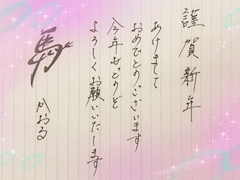 謹賀新年
あけまして
おめでとうございます
今年もどうぞ
よろしくお願いいたします
馬
かおる